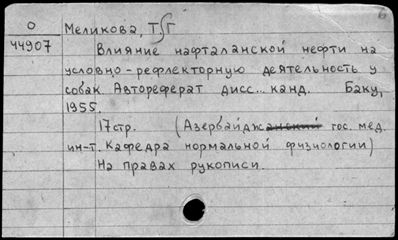 О
44907
Меликова, Т∫Г
Влияние нафталанской нефти на
условно-рефлекторную деятельность у
собак. Автореферат дисс... канд. Баку,
1955.
17стр. (Азербайджанский гос. мед.
ин-т. Кафедра нормальной физиологии)
На правах рукописи.